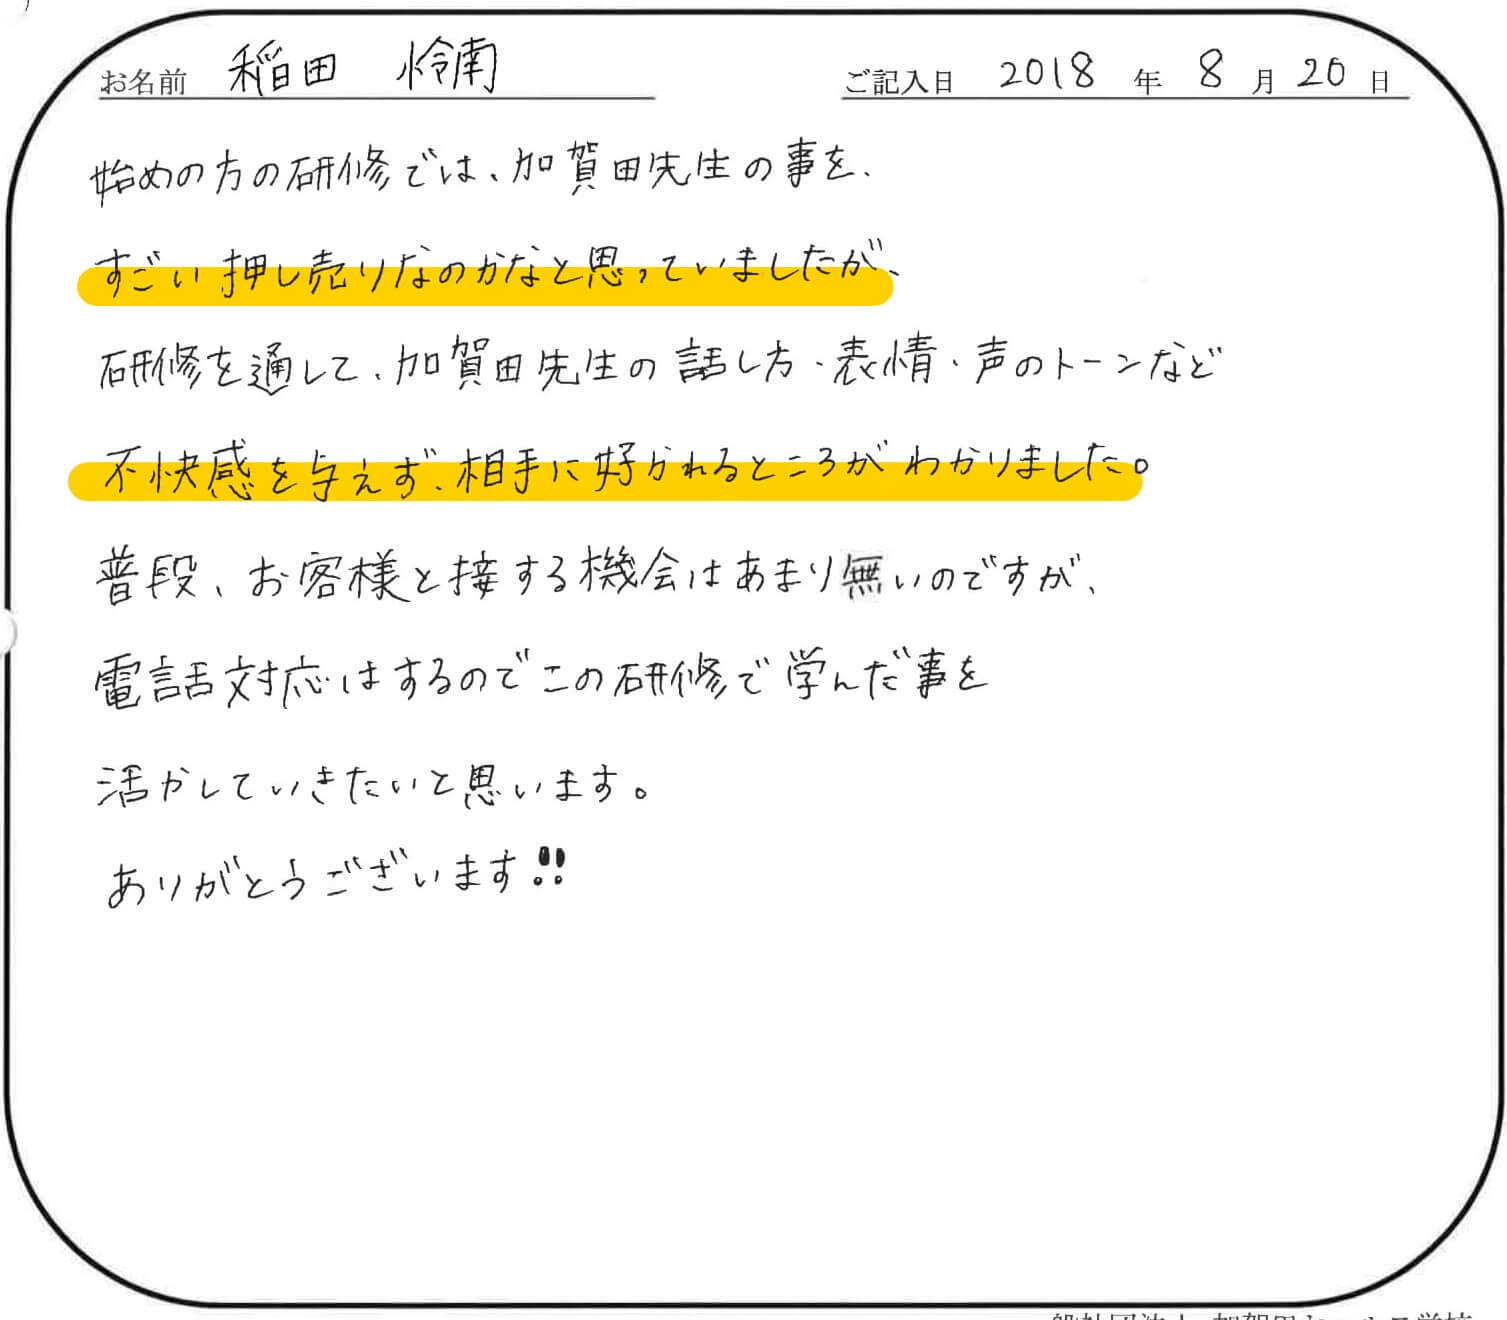 お名前 稲田 怜南 ご記入日 2018 年 8 月 20 日
始めの方の研修では、加賀田先生の事を、
すごい押し売りなのかなと思っていましたが、
研修を通して、加賀田先生の話し方・表情・声のトーンなど
不快感を与えず、相手に好かれるところがわかりました。
普段、お客様と接する機会はあまり無いのですが、
電話対応はするのでこの研修で学んだ事を
活かしていきたいと思います。
ありがとうございます!!